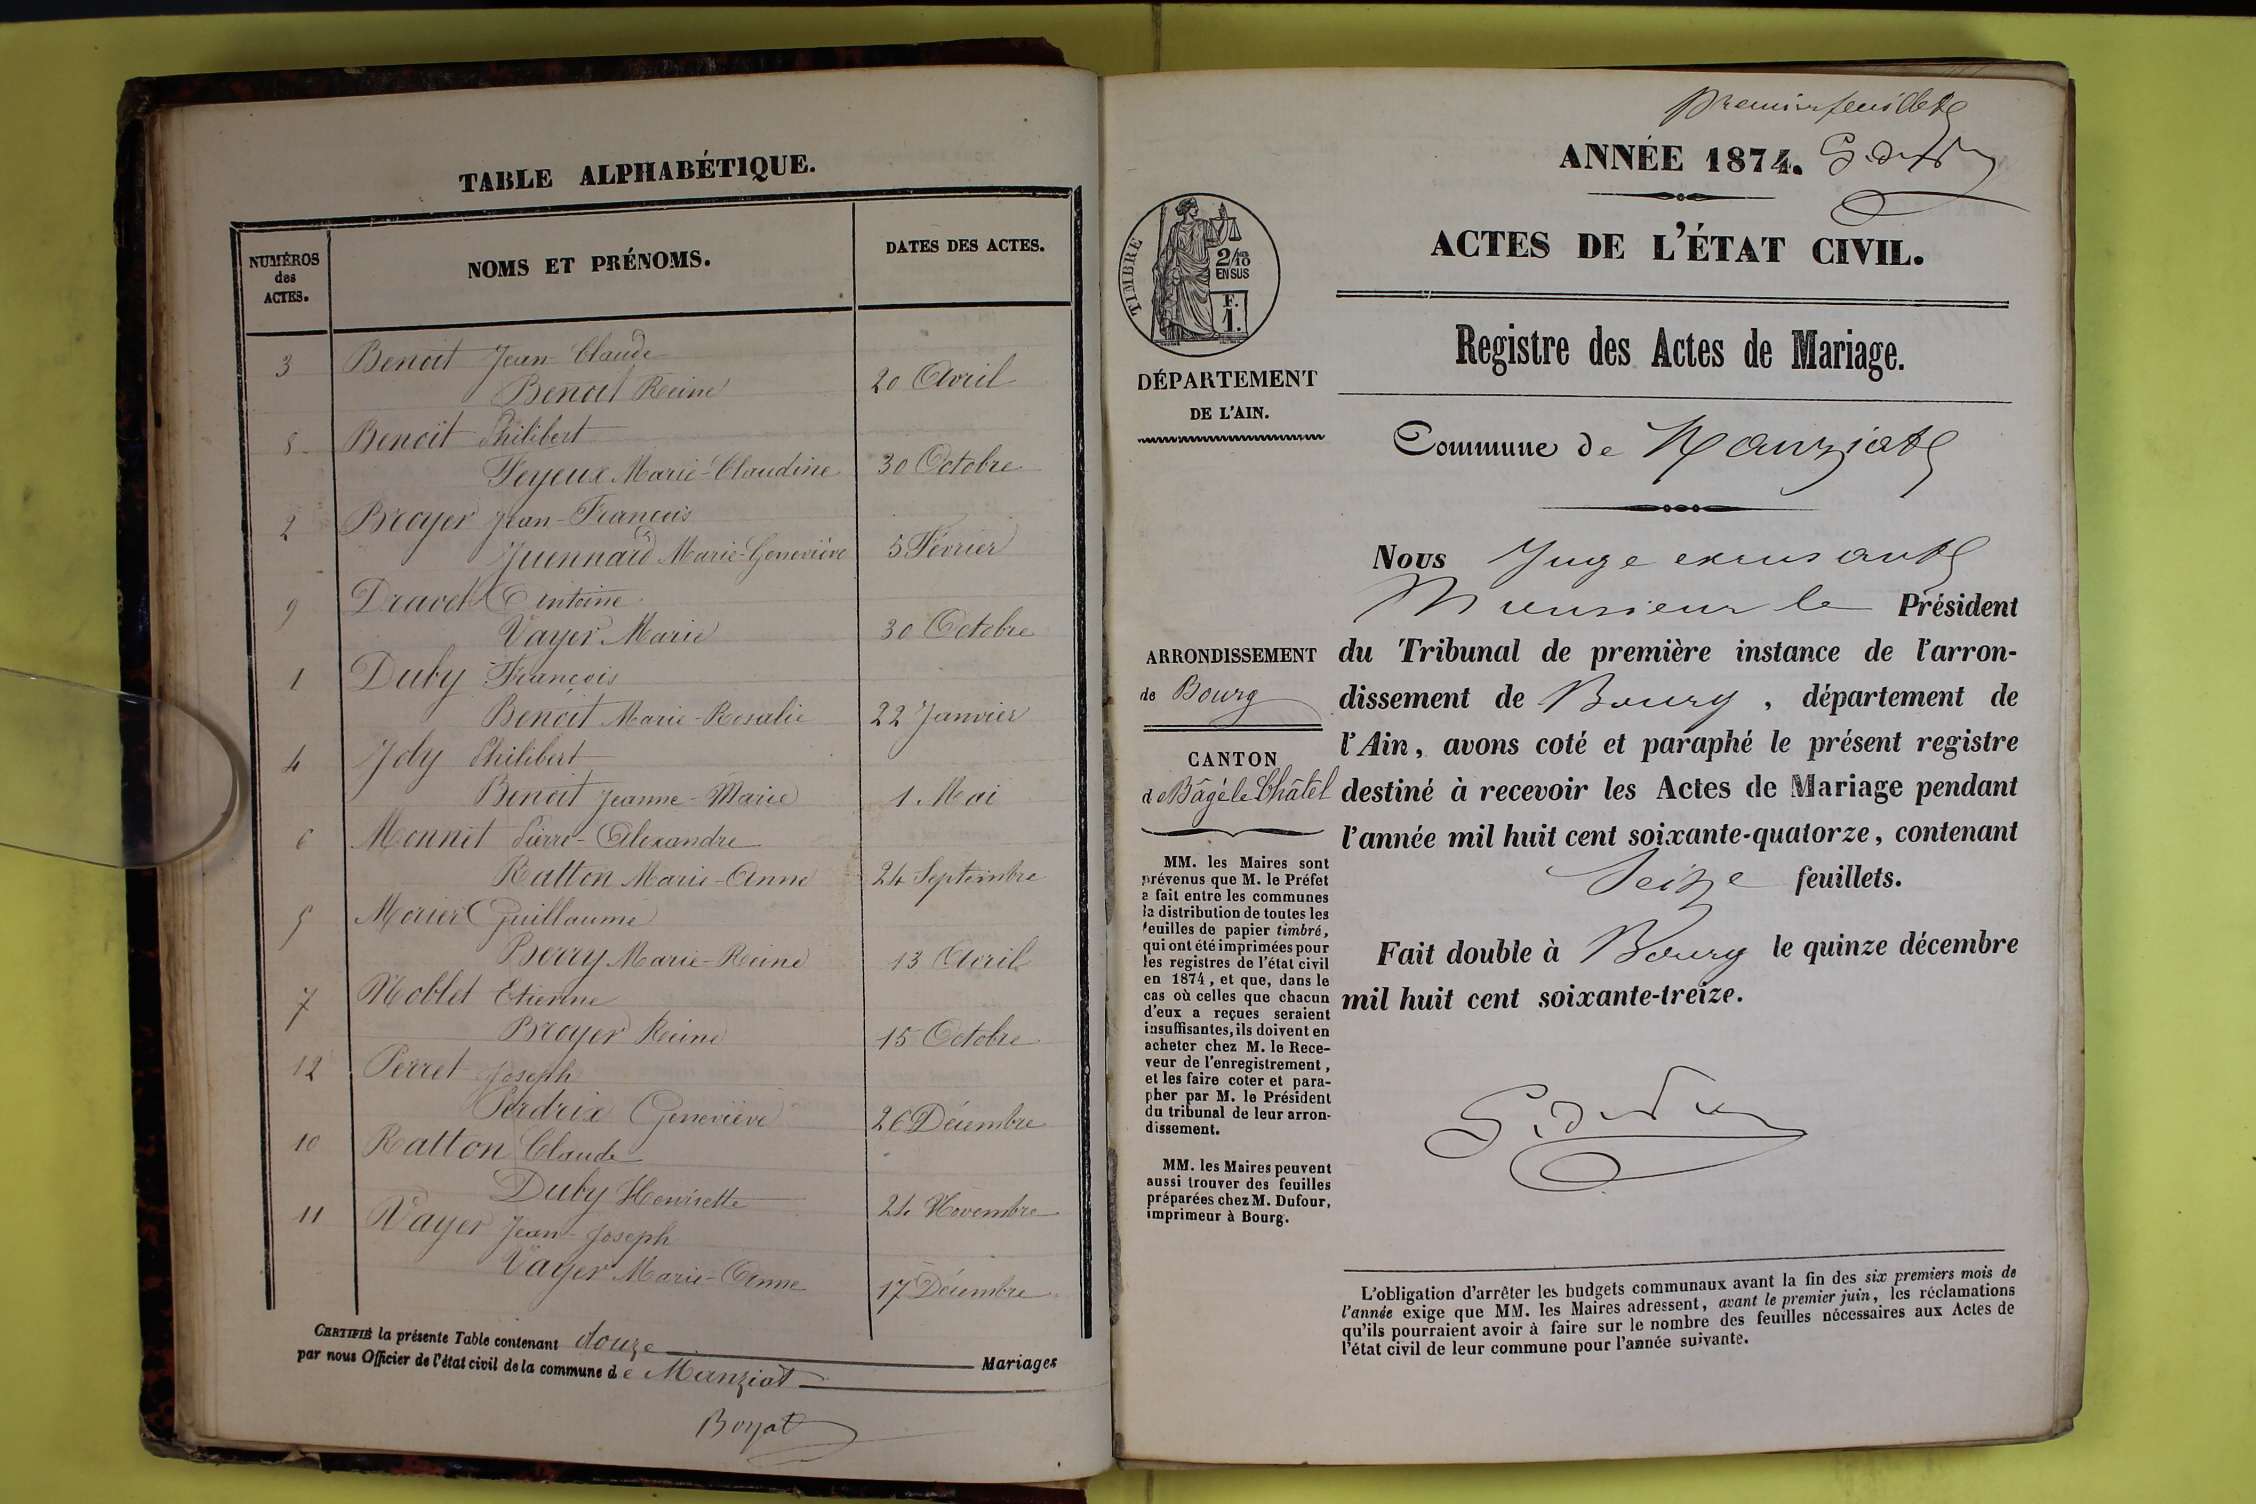 TABLE ALPHABÉTIQUE.
NUMÉROS
des
ACTES.
NOMS ET PRÉNOMS.
DATES DES ACTES.
3 Benoit Jean-Claude
Benoit Reine 20 Avril
8 Benoit Philibert
Feyeux Marie-Claudine 30 Octobre
2 Broyer Jean-François
Juennard Marie-Geneviève 5 Février
9 Dravet Antoine
Vayer Marie 30 Octobre
1 Duby François
Benoit Marie-Rosalie 22 Janvier
4 Joly Philibert
Benoit Jeanne-Marie 1 Mai
6 Monnet Pierre-Alexandre
Ratton Marie-Anne 24 Septembre
5 Morier Guillaume
Berry Marie-Reine 13 Avril
7 Noblet Etienne
Broyer Reine 15 Octobre
12 Perret Joseph
Perdrix Geneviève 26 Décembre
10 Ratton Claude
Duby Henriette 24 Novembre
11 Vayer Jean-Joseph
Vayer Marie-Anne 17 Décembre
CERTIFIÉ la présente Table contenant douze Mariages
par nous Officier de l'état civil de la commune de Manziat
Boyat
Premier feuillet
ANNÉE 1874.
ACTES DE L'ÉTAT CIVIL.
TIMBRE
2/10
EN SUS
F.
1.
DÉPARTEMENT
DE L'AIN.
Registre des Actes de Mariage.
Commune de Manziat
ARRONDISSEMENT
de Bourg
CANTON
de Bâgé le Châtel
MM. les Maires sont
prévenus que M. le Préfet
a fait entre les communes
la distribution de toutes les
feuilles de papier timbré,
qui ont été imprimées pour
les registres de l'état civil
en 1874, et que, dans le
cas où celles que chacun
d'eux a reçues seraient
insuffisantes, ils doivent en
acheter chez M. le Rece-
veur de l'enregistrement,
et les faire coter et para-
pher par M. le Président
du tribunal de leur arron-
dissement.
MM. les Maires peuvent
aussi trouver des feuilles
préparées chez M. Dufour,
imprimeur à Bourg.
Nous Juge excusant
Monsieur le Président
du Tribunal de première instance de l'arron-
dissement de Bourg, département de
l'Ain, avons coté et paraphé le présent registre
destiné à recevoir les Actes de Mariage pendant
l'année mil huit cent soixante-quatorze, contenant
Seize feuillets.
Fait double à Bourg le quinze décembre
mil huit cent soixante-treize.
L'obligation d'arrêter les budgets communaux avant la fin des six premiers mois de
l'année exige que MM. les Maires adressent, avant le premier juin, les réclamations
qu'ils pourraient avoir à faire sur le nombre des feuilles nécessaires aux Actes de
l'état civil de leur commune pour l'année suivante.